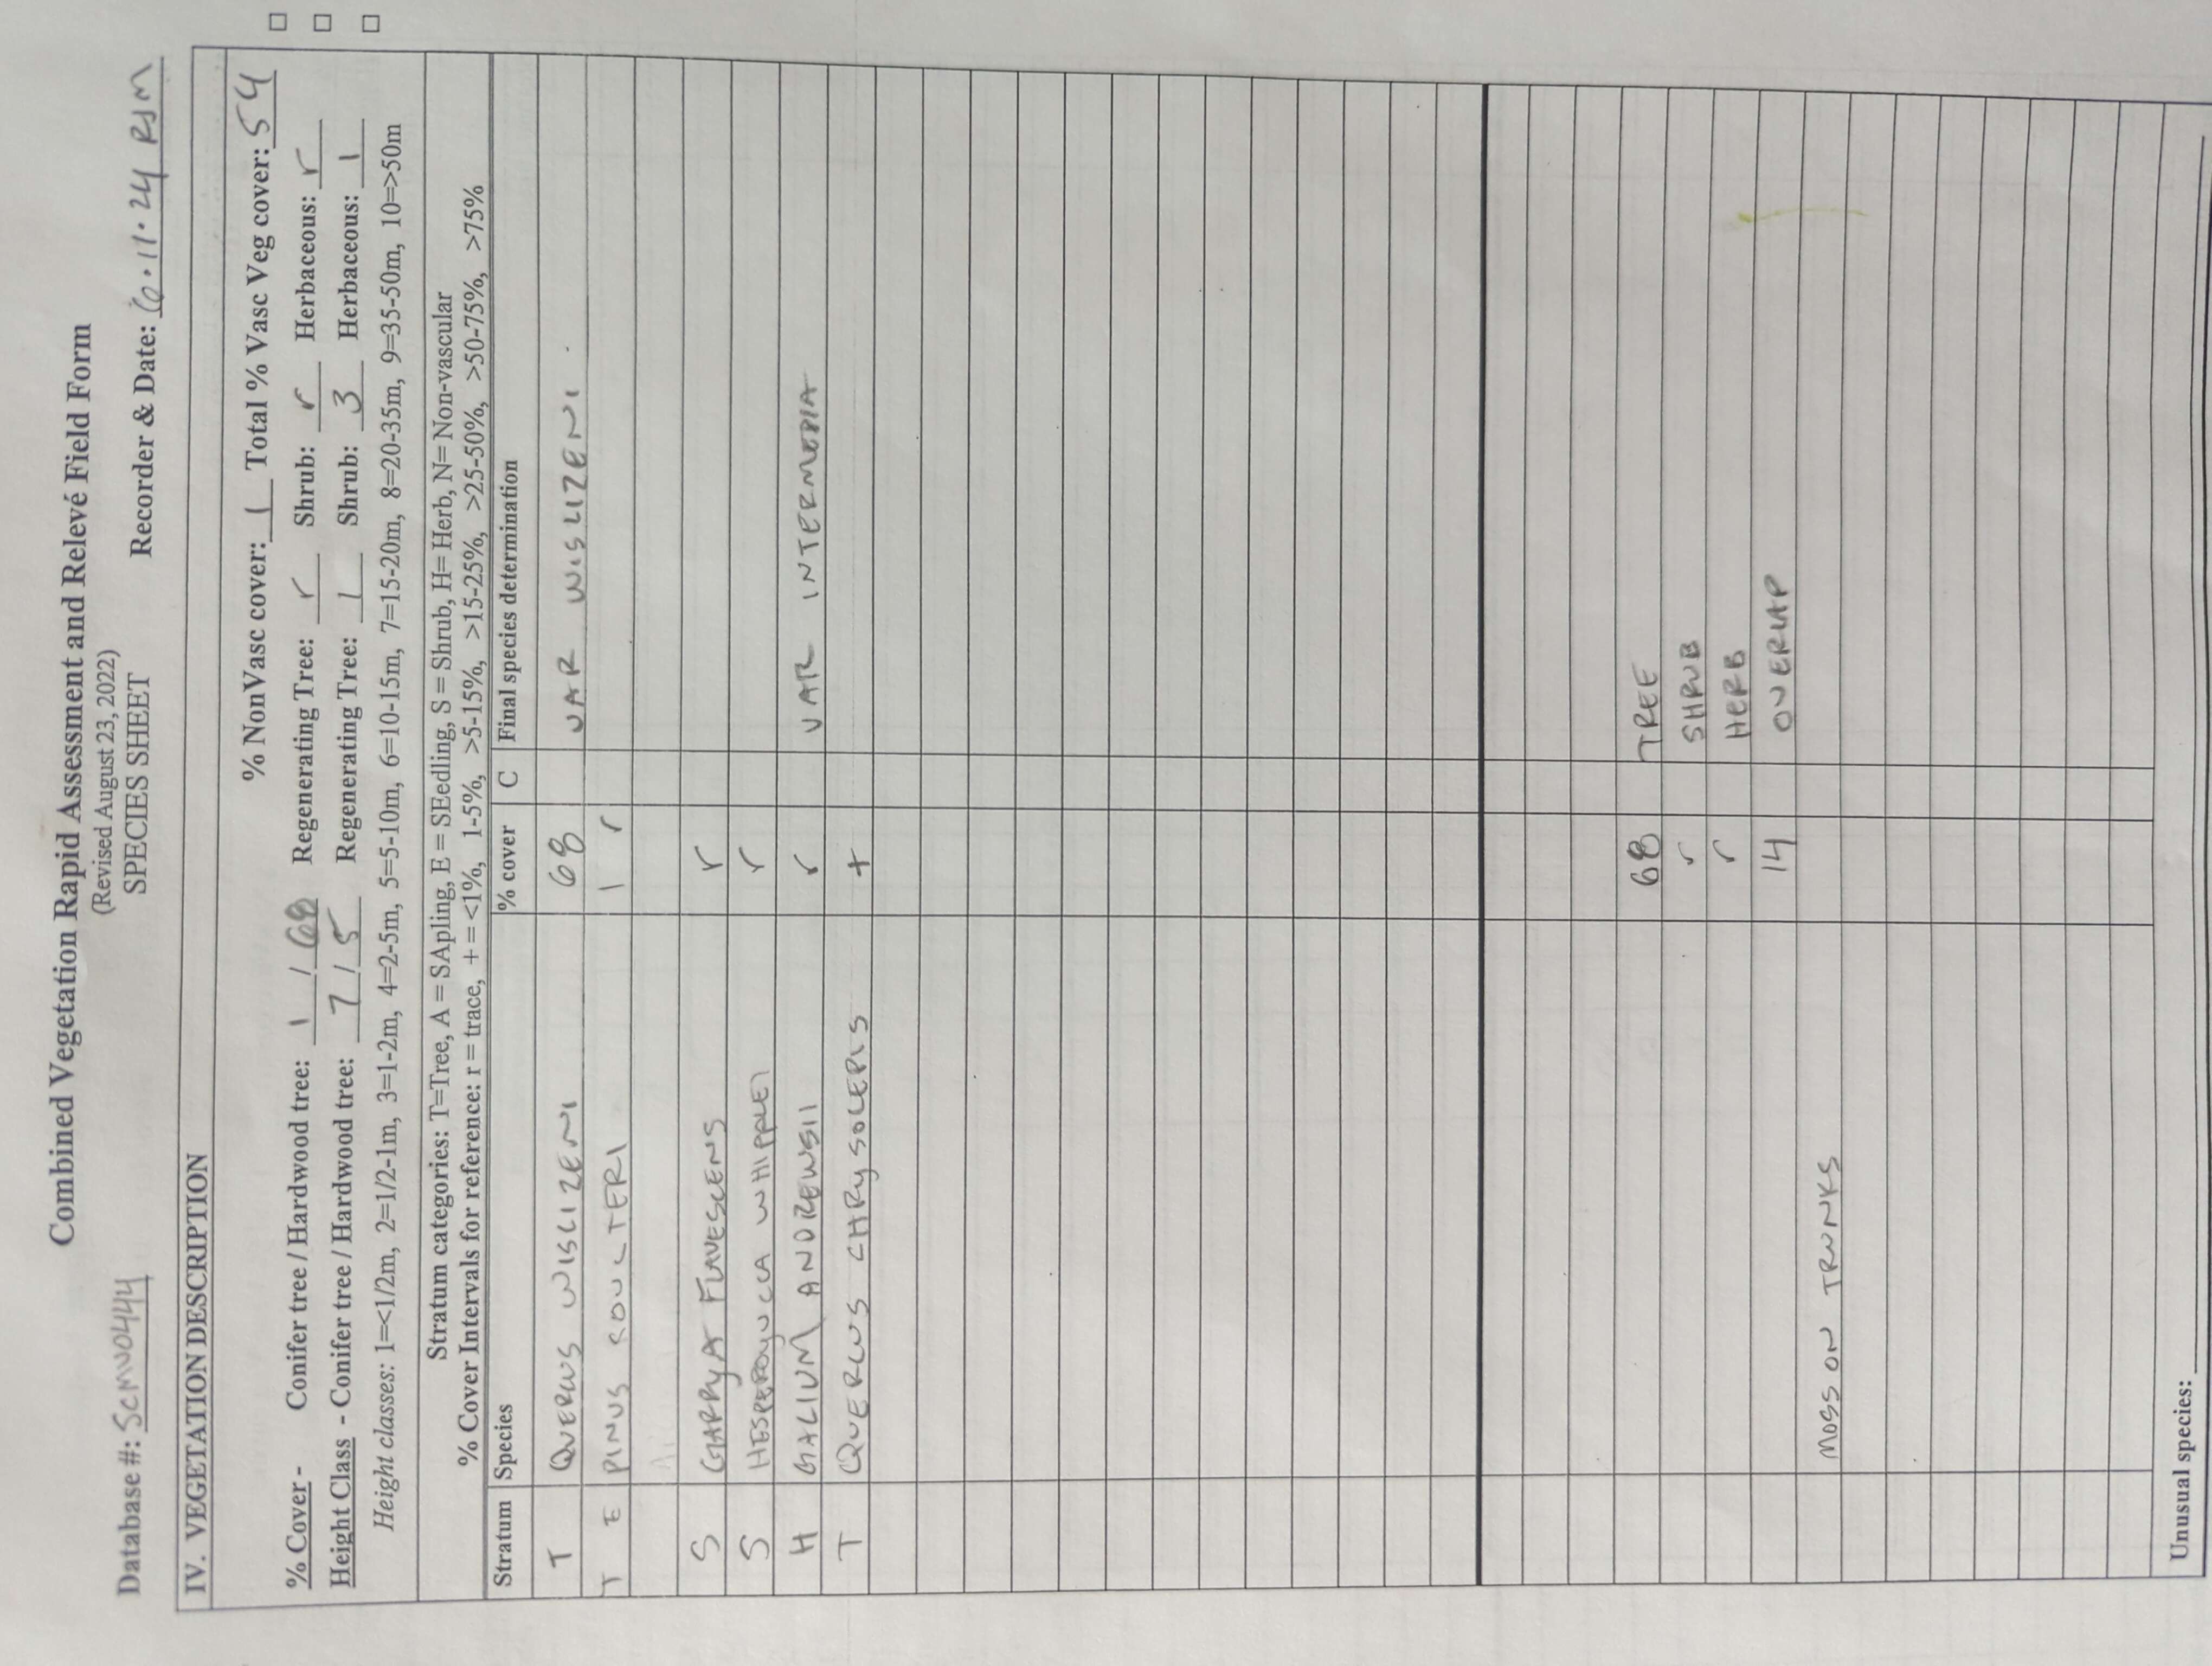 Combined Vegetation Rapid Assessment and Relevé Field Form
(Revised August 23, 2022)
Database #: SCMV0444 SPECIES SHEET Recorder & Date: 6.11.24 RJM
IV. VEGETATION DESCRIPTION
% NonVasc cover: 1 Total % Vasc Veg cover: 54
% Cover - Conifer tree / Hardwood tree: 1 / 68 Regenerating Tree: r Shrub: r Herbaceous: r
Height Class - Conifer tree / Hardwood tree: 7 / 5 Regenerating Tree: 1 Shrub: 3 Herbaceous: 1
Height classes: 1=<1/2m, 2=1/2-1m, 3=1-2m, 4=2-5m, 5=5-10m, 6=10-15m, 7=15-20m, 8=20-35m, 9=35-50m, 10=>50m
Stratum categories: T=Tree, A = SApling, E = SEedling, S = Shrub, H= Herb, N= Non-vascular
% Cover Intervals for reference: r = trace, + = <1%, 1-5%, >5-15%, >15-25%, >25-50%, >50-75%, >75%
Stratum Species % cover C Final species determination
T QUERCUS WISLIZENI 68 VAR WISLIZENI
T E PINUS COULTERI 1 r
S GARRYA FLAVESCENS r
S HESPEROYUCCA WHIPPLEI r
H GALIUM ANDREWSII r VAR INTERMEDIA
T QUERCUS CHRYSOLEPIS +
68 TREE
r SHRUB
r HERB
14 OVERLAP
MOSS ON TRUNKS
Unusual species: